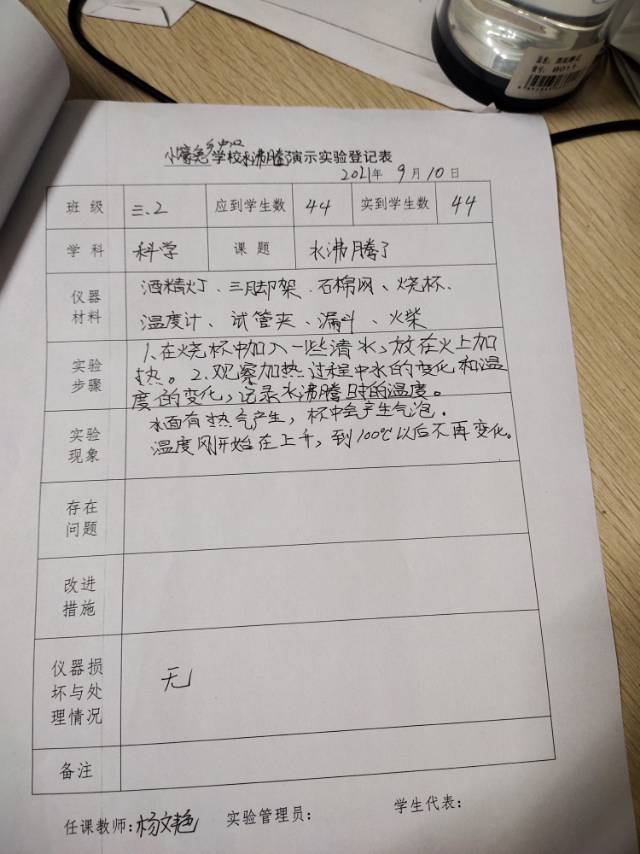 小壕兔乡中心学校水沸腾了演示实验登记表
2021年 9月10日
班级 三.2 应到学生数 44 实到学生数 44
学科 科学 课题 水沸腾了
仪器材料 酒精灯、三脚架、石棉网、烧杯、
温度计、试管夹、漏斗、火柴
实验步骤 1.在烧杯中加入一些清水,放在火上加
热。2.观察加热过程中水的变化和温
度的变化,记录水沸腾时的温度。
实验现象 水面有热气产生,杯中会产生气泡.
温度刚开始在上升,到100℃以后不再变化。
存在问题
改进措施
仪器损坏与处理情况 无
备注
任课教师:杨文艳 实验管理员: 学生代表: